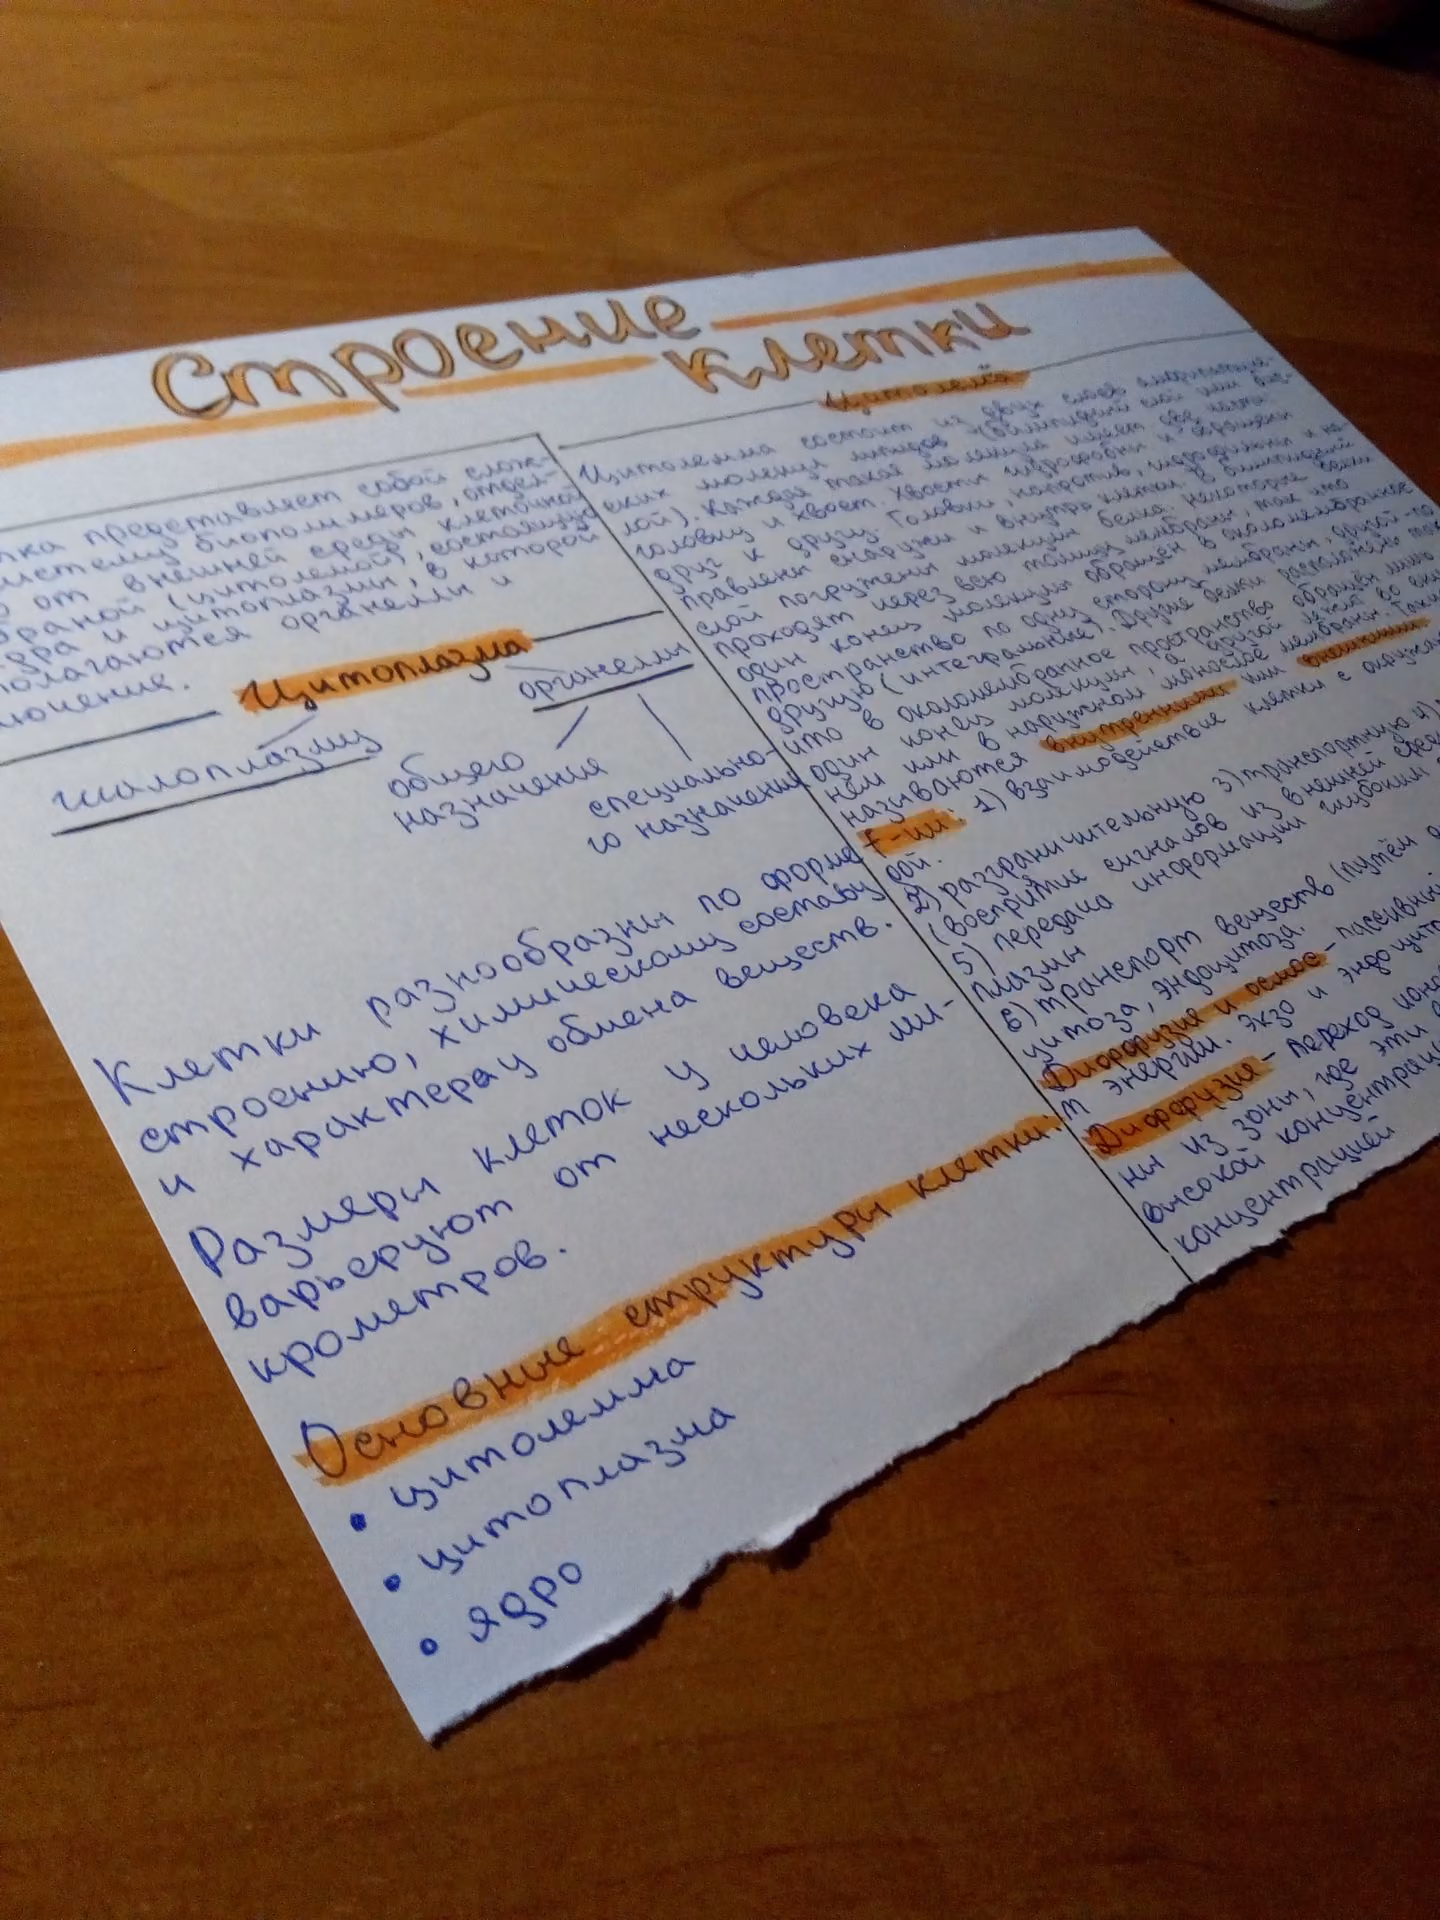 Строение
клетки
представляет собой слож-
биополимеров, отдел-
от внешней среды клеточной
(цитолемой), состоящую
и цитоплазмы, в которой
органеллы и
Цитоплазма
гиалоплазму
органеллы
общего
назначения
специально-
го назначения
Клетки разнообразны по форме
строению, химическому составу
и характеру обмена веществ.
Размеры клеток у человека
варьеруют от нескольких ми-
крометров.
Основные структуры клетки:
• цитолемма
• цитоплазма
• ядро
Цитолема
Цитолемма состоит из двух слоев
еских молекул липидов (билипидный слой или
лой). Каждая такая молекула имеет две части:
головку и хвост. Хвосты гидрофобны и обращены
друг к другу. Головки, напротив, гидрофильны и на-
правлены снаружи и внутрь клетки. В билипидный
слой погружены молекулы белка. Некоторые
проходят через всю толщу мембраны, так что
один конец молекулы обращен в околомембранное
пространство по одну сторону мембраны, другой - по
другую (интегральные). Другие белки расположены так
что в околомембранное пространство обращён лишь
один конец молекулы, а другой лежит во
нем или в наружном монослое мембраны.
называются внутренними или внешними
F-ии: 1) взаимодействие клетки с
ой.
2) разграничительную 3) транспортную 4)
(восприятие сигналов из внешней
5) передача информации глубоким
плазмы
6) транспорт веществ (путём
цитоза, эндоцитоза.
Диффузия и осмос -
т энергии. Экзо и
Диффузия - переход
ны из зоны, где эти
высокой
концентрацией